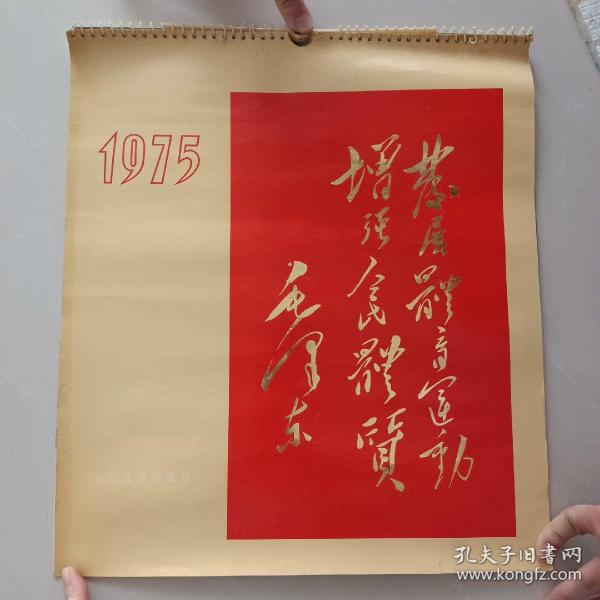 1975
發展體育運動
增强人民體質
毛澤东
人民体育出版社
孔夫子旧书网
www.kongfz.com